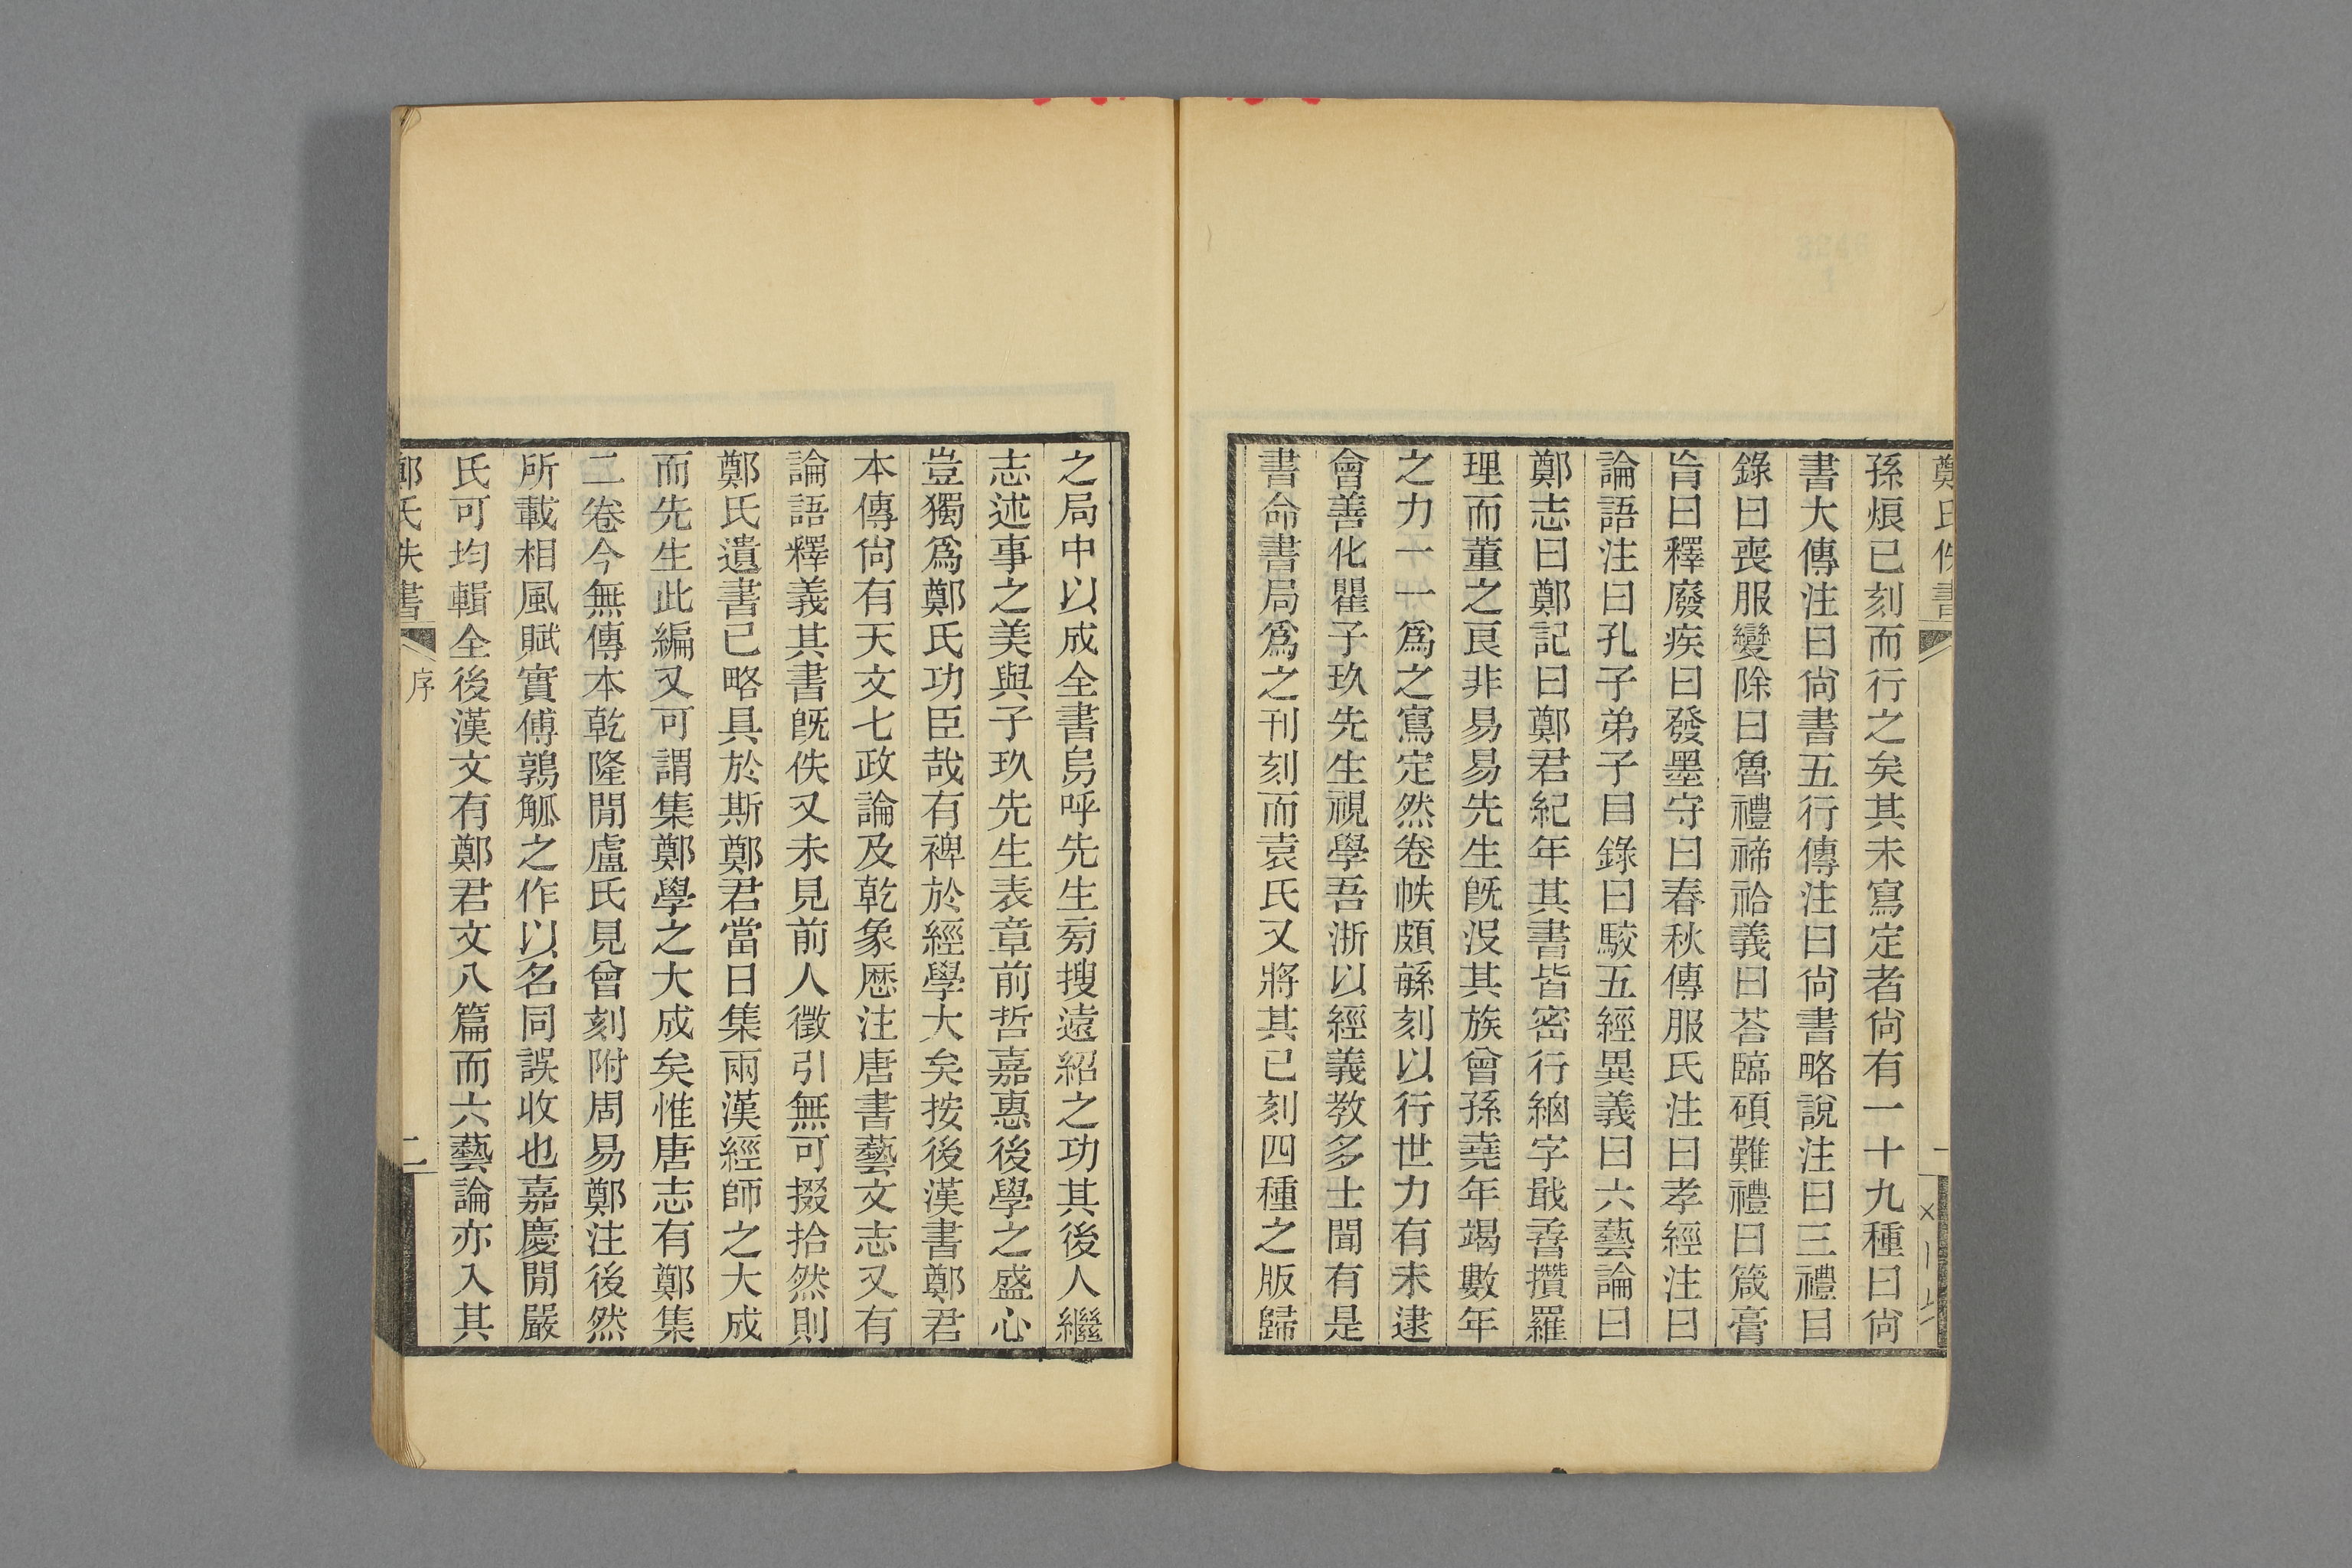 鄭氏佚書
孫烺已刻而行之矣其未寫定者尙有一十九種曰尙
書大傳注曰尙書五行傳注曰尙書略說注曰三禮目
錄曰喪服變除曰魯禮禘祫義曰荅臨碩難禮曰箴膏
肓曰釋廢疾曰發墨守曰春秋傳服氏注曰孝經注曰
論語注曰孔子弟子目錄曰駮五經異義曰六藝論曰
鄭志曰鄭記曰鄭君紀年其書皆密行細字戢孴攢羅
理而董之良非易易先生旣沒其族曾孫堯年竭數年
之力一一爲之寫定然卷帙頗緐刻以行世力有未逮
會善化瞿子玖先生視學吾浙以經義教多士聞有是
書命書局爲之刊刻而袁氏又將其已刻四種之版歸
之局中以成全書烏呼先生旁搜遠紹之功其後人繼
志述事之美與子玖先生表章前哲嘉惠後學之盛心
豈獨爲鄭氏功臣哉有裨於經學大矣按後漢書鄭君
本傳尙有天文七政論及乾象厯注唐書藝文志又有
論語釋義其書旣佚又未見前人徵引無可掇拾然則
鄭氏遺書已略具於斯鄭君當日集兩漢經師之大成
而先生此編又可謂集鄭學之大成矣惟唐志有鄭集
二卷今無傳本乾隆閒盧氏見曾刻附周易鄭注後然
所載相風賦實傅鶉觚之作以名同誤收也嘉慶閒嚴
氏可均輯全後漢文有鄭君文八篇而六藝論亦入其
鄭氏佚書 序 二